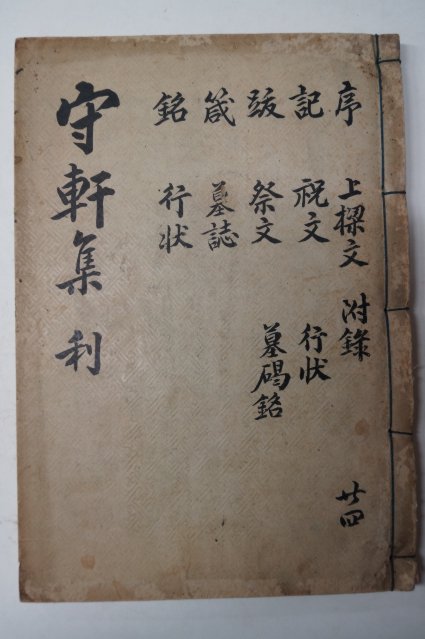 守軒集 利
序 上樑文 附錄 廿四
記 祝文 行狀
跋 祭文 墓碣銘
箴 墓誌
銘 行狀